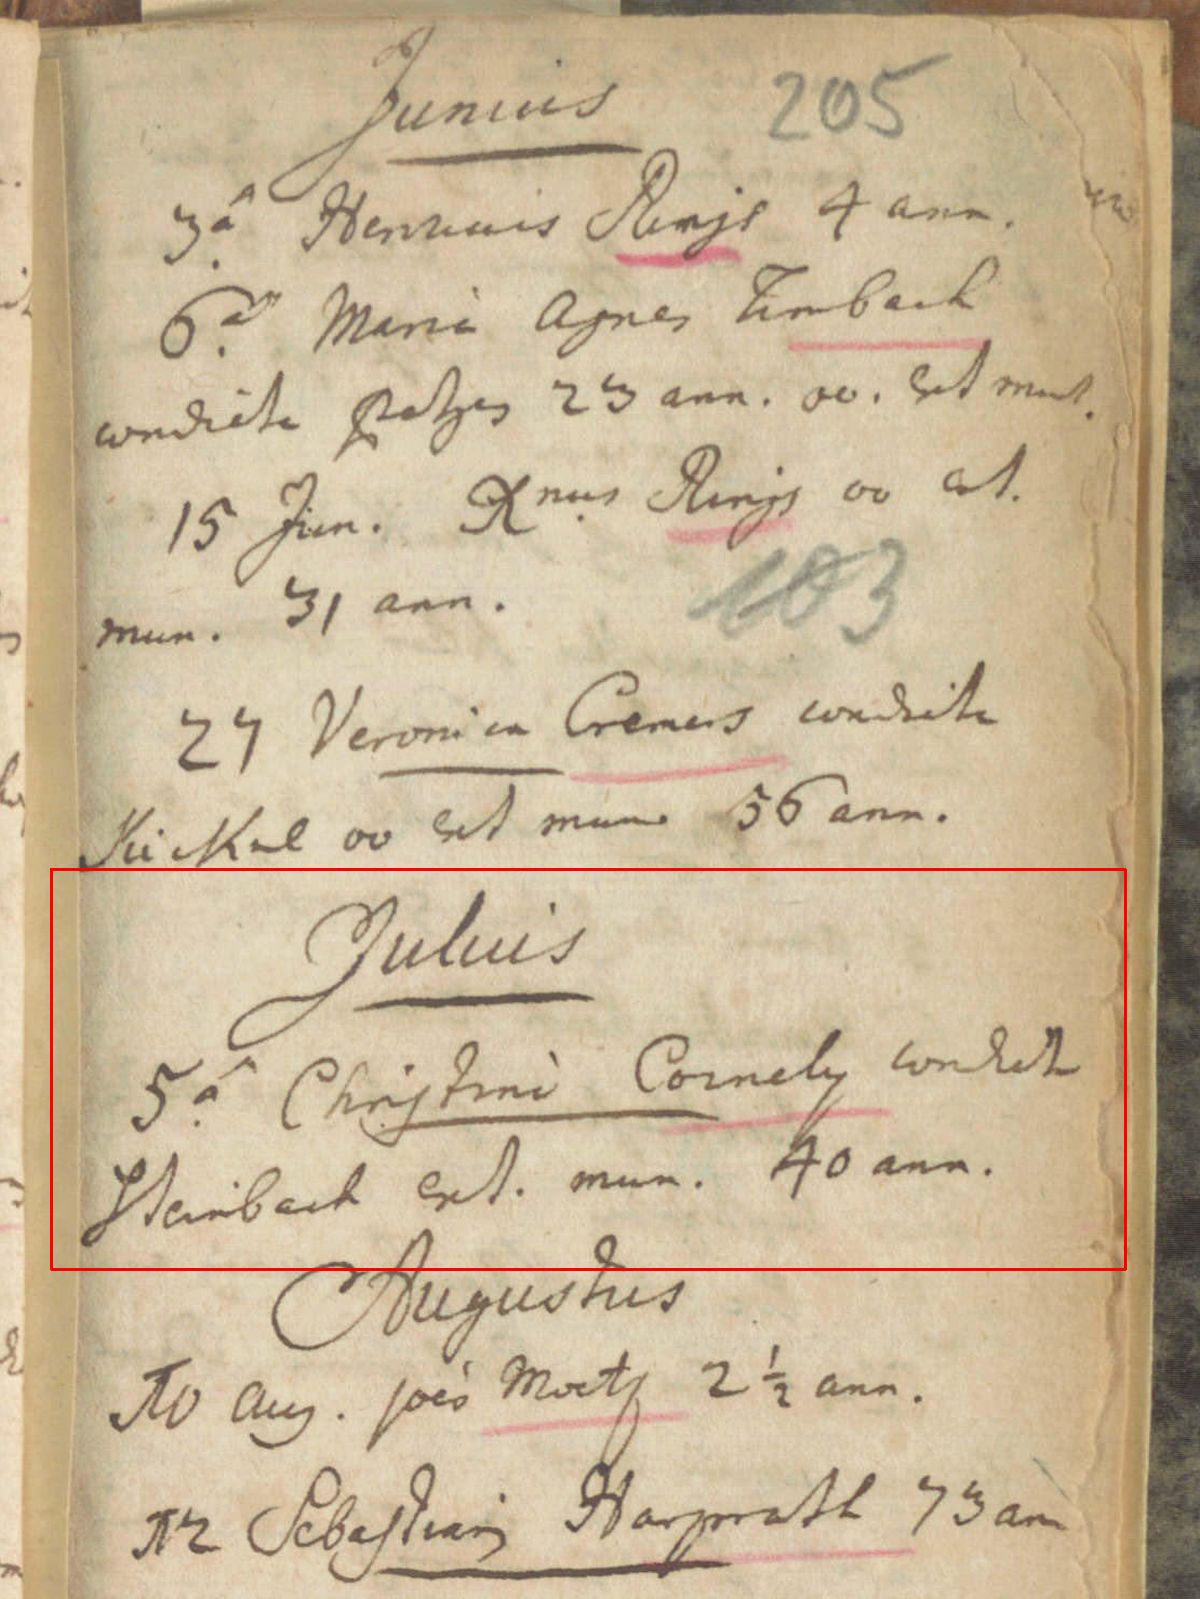 Junius 205
3â Henricus Rings 4 ann.
6.â Maria Agnes Timbach
condicta Petzes 23 ann. oo. ext mun.
15 Jun. Xnus Rings oo ext.
mun. 31 ann.
103
27 Veronica Cremers condicta
Kickel oo ext mun 56 ann.
Julius
5.â Christina Cornely condicta
Steinbach ext. mun. 40 ann.
Augustus
10 Aug. joes Moetz 2 1/2 ann.
12 Sebastianus Harpprath 73 ann